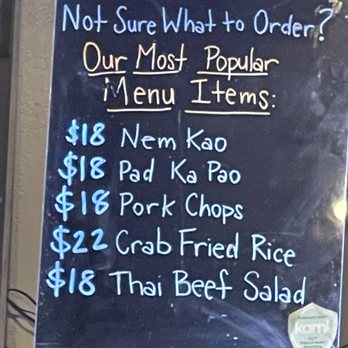 Not Sure What to Order?
Our Most Popular
Menu Items:
$18 Nem Kao
$18 Pad Ka Pao
$18 Pork Chops
$22 Crab Fried Rice
$18 Thai Beef Salad
kami